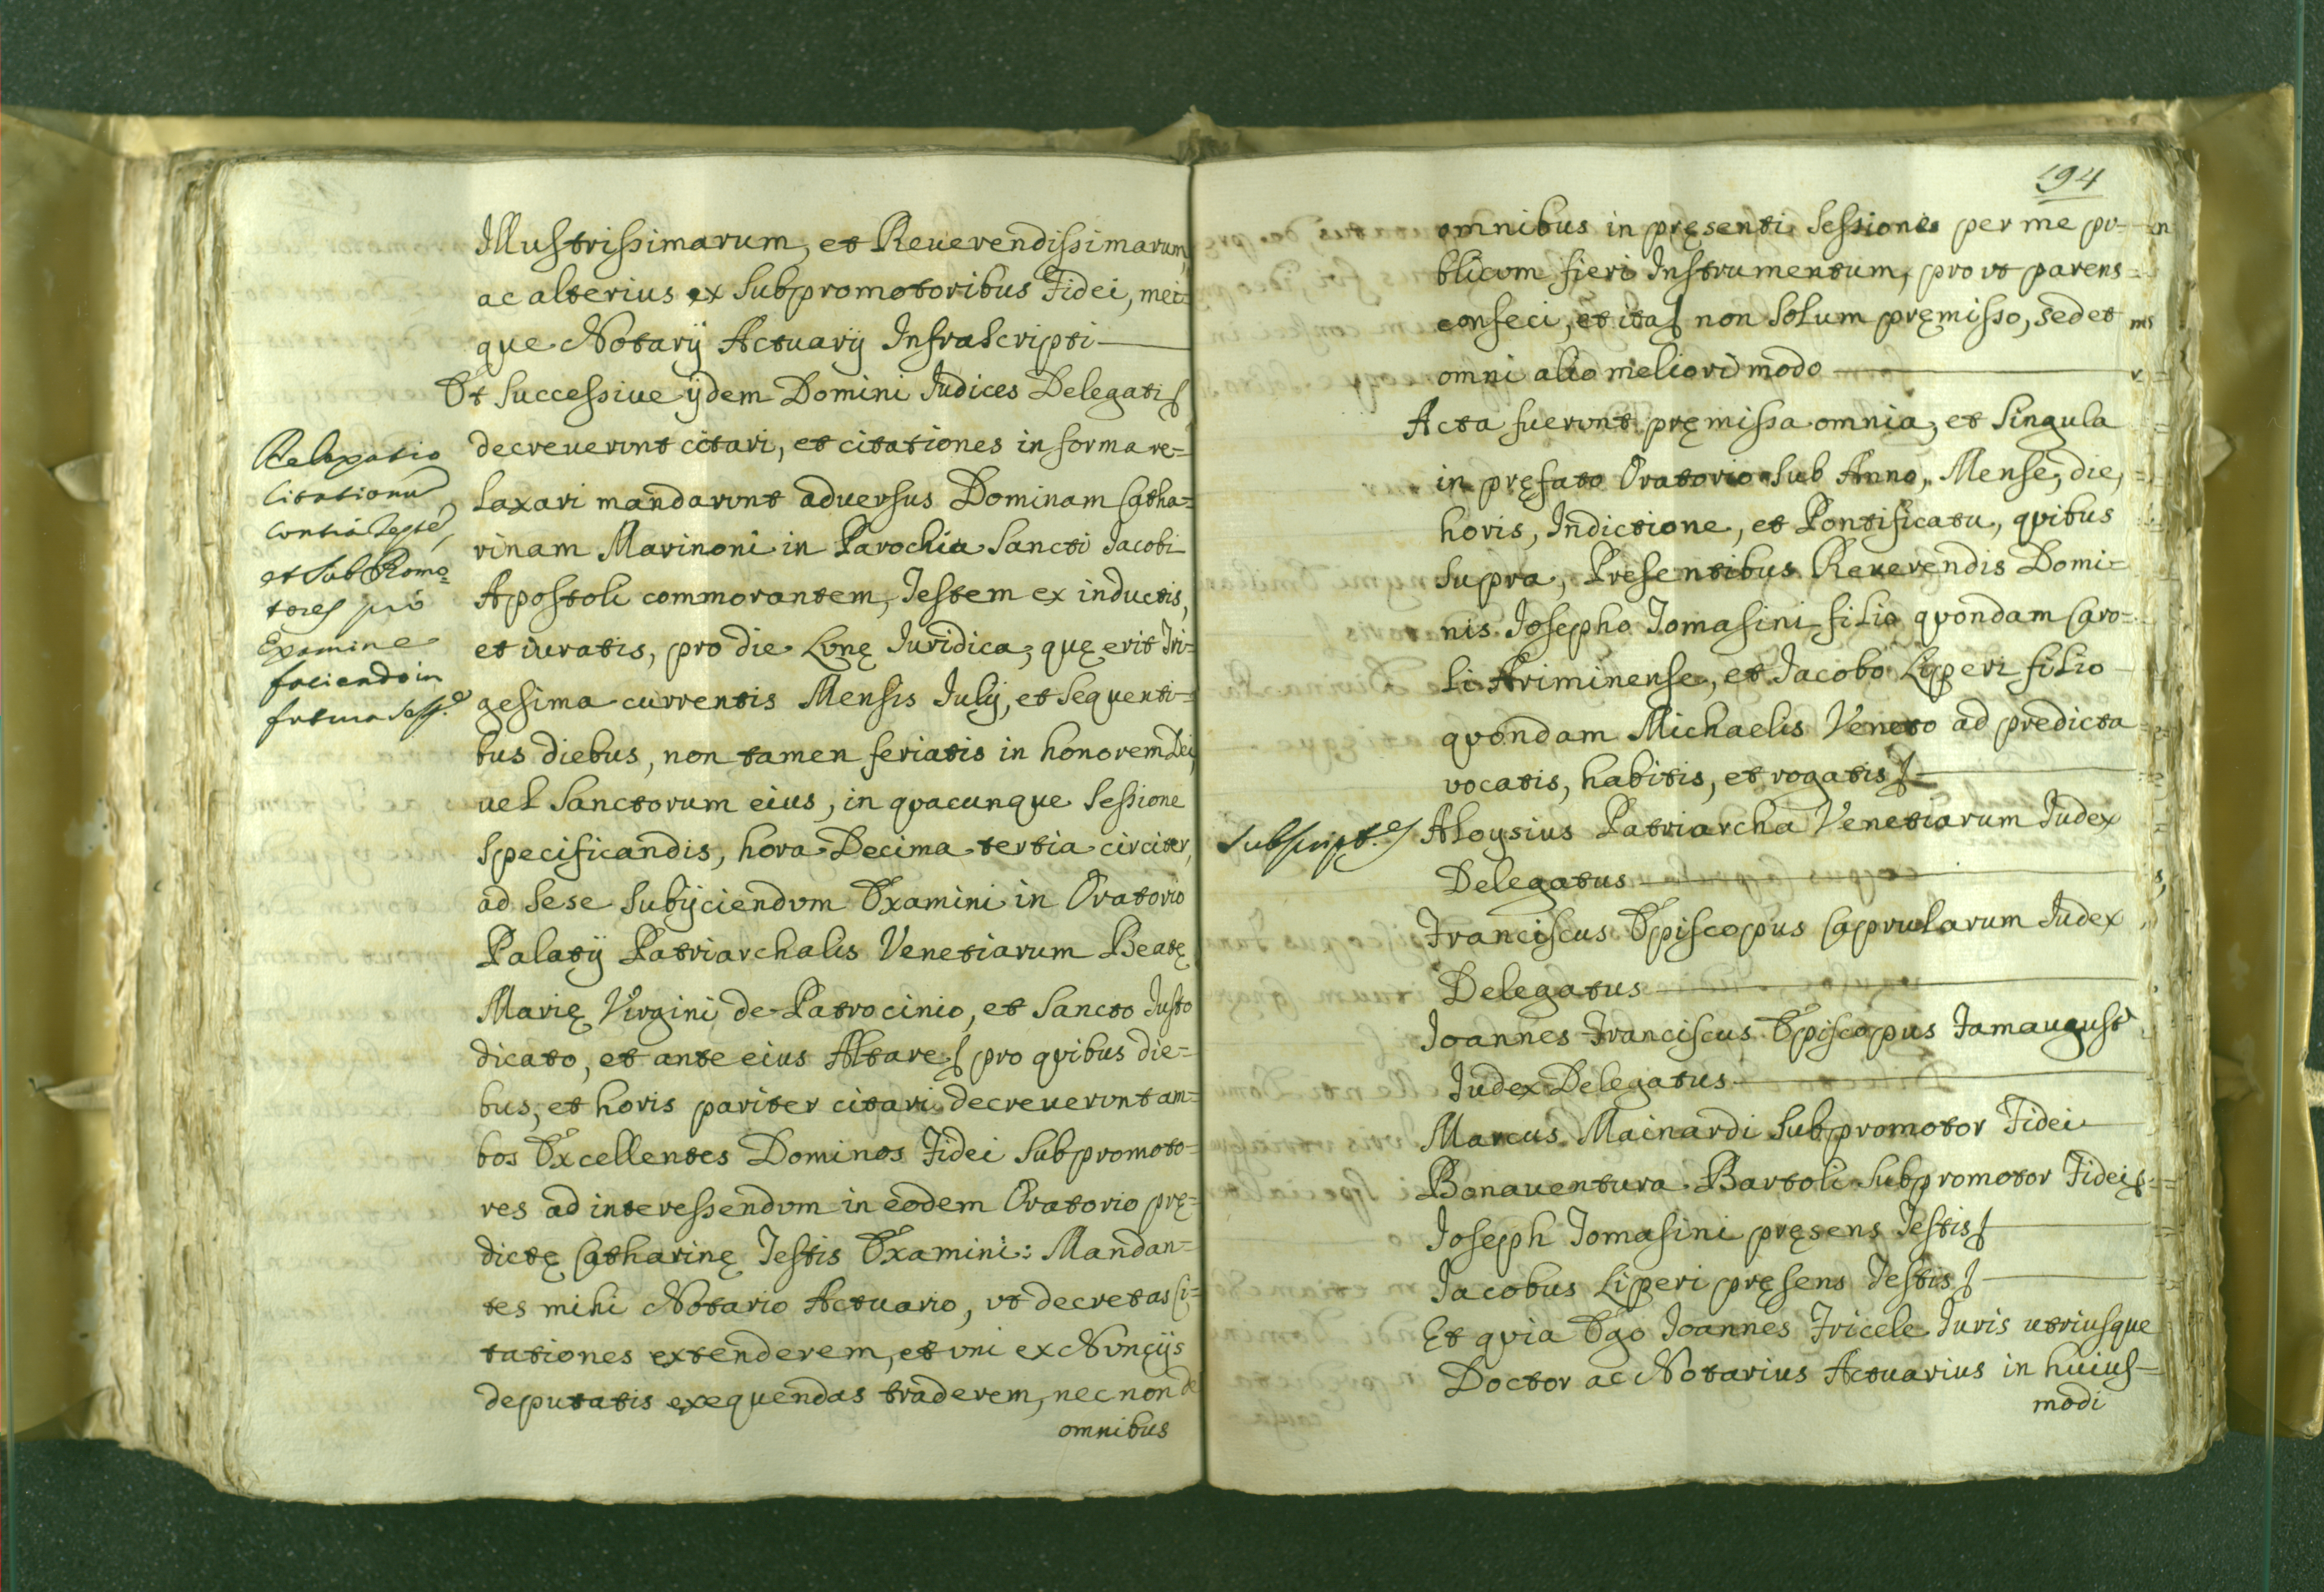 Illustrissimarum, et Reuerendissimarum,
ac alterius ex Subpromotoribus Fidei, mei=
que Notarij Actuarij Infrascripti
Et Successiue ijdem Domini Iudices Delegati
decreuerunt citari, et citationes in forma re=
laxari mandarunt aduersus Dominam Catha=
rinam Marinoni in Parochia Sancti Iacobi
Apostoli commorantem, Testem ex inductis,
et iuratis, pro die Lunę Iuridica, quę erit Tri=
gesima currentis Mensis Iulij, et sequenti=
bus diebus, non tamen feriatis in honorem Dei,
uel Sanctorum eius, in quacunque Sessione
specificandis, hora Decima tertia circiter,
ad sese subijciendum Examini in Oratorio
Palatij Patriarchalis Venetiarum Beatę
Marię Virgini de Patrocinio, et Sancto Iusto
dicato, et ante eius Altare pro quibus die=
bus, et horis pariter citari decreuerunt am=
bos Excellentes Dominos Fidei Subpromoto=
res ad interessendum in eodem Oratorio prę=
dictę Catharinę Testis Examini: Mandan=
tes mihi Notario Actuario, ut decretas Ci=
tationes extenderem, et uni ex Nuncijs
deputatis exequendas traderem, nec non de
omnibus
Relaxatio
Citationũ
Contra Teste,
et Sub Promo=
tores pro
Examine
faciendo in
futura Sess.e
194
omnibus in pręsenti Sessione per me pu=
blicum fieri Instrumentum, prout parens
confeci, et ita non solum pręmisso, sed et
omni alio meliori modo
Acta fuerunt pręmissa omnia, et singula
in pręfato Oratorio sub Anno, Mense, die,
horis, Indictione, et Pontificatu, quibus
supra, Presentibus Reuerendis Domi=
nis Iosepho Tomasini filio quondam Caro=
li Ariminense, et Iacobo Liperi filio
quondam Michaelis Veneto ad predicta
vocatis, habitis, et rogatis
Subscript.e Aloysius Patriarcha Venetiarum Iudex
Delegatus
Franciscus Episcopus Caprularum Iudex
Delegatus
Ioannes Franciscus Episcopus Famaugust
Iudex Delegatus
Marcus Mainardi Subpromotor Fidei
Bonauentura Bartoli Subpromotor Fidei
Ioseph Tomasini pręsens Testis
Iacobus Liperi pręsens Testis
Et quia Ego Ioannes Fricele Iuris utriusque
Doctor ac Notarius Actuarius in huius=
modi